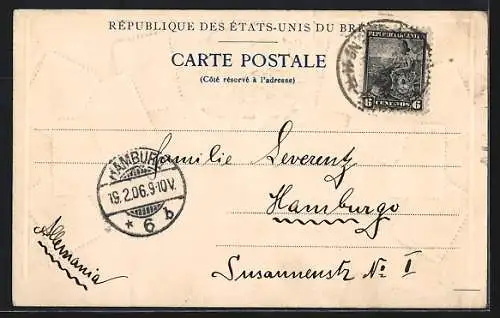 RÉPUBLIQUE DES ÉTATS-UNIS DU BR
CARTE POSTALE
(Côté réservé à l'adresse)
REPUBLICA ARGENTINA
6 CENTAVOS 6
Familie Leverenz
HAMBURG
19.2.06.9-10V.
* 6 b
Hamburgo
Allemania
Susannenstr No I